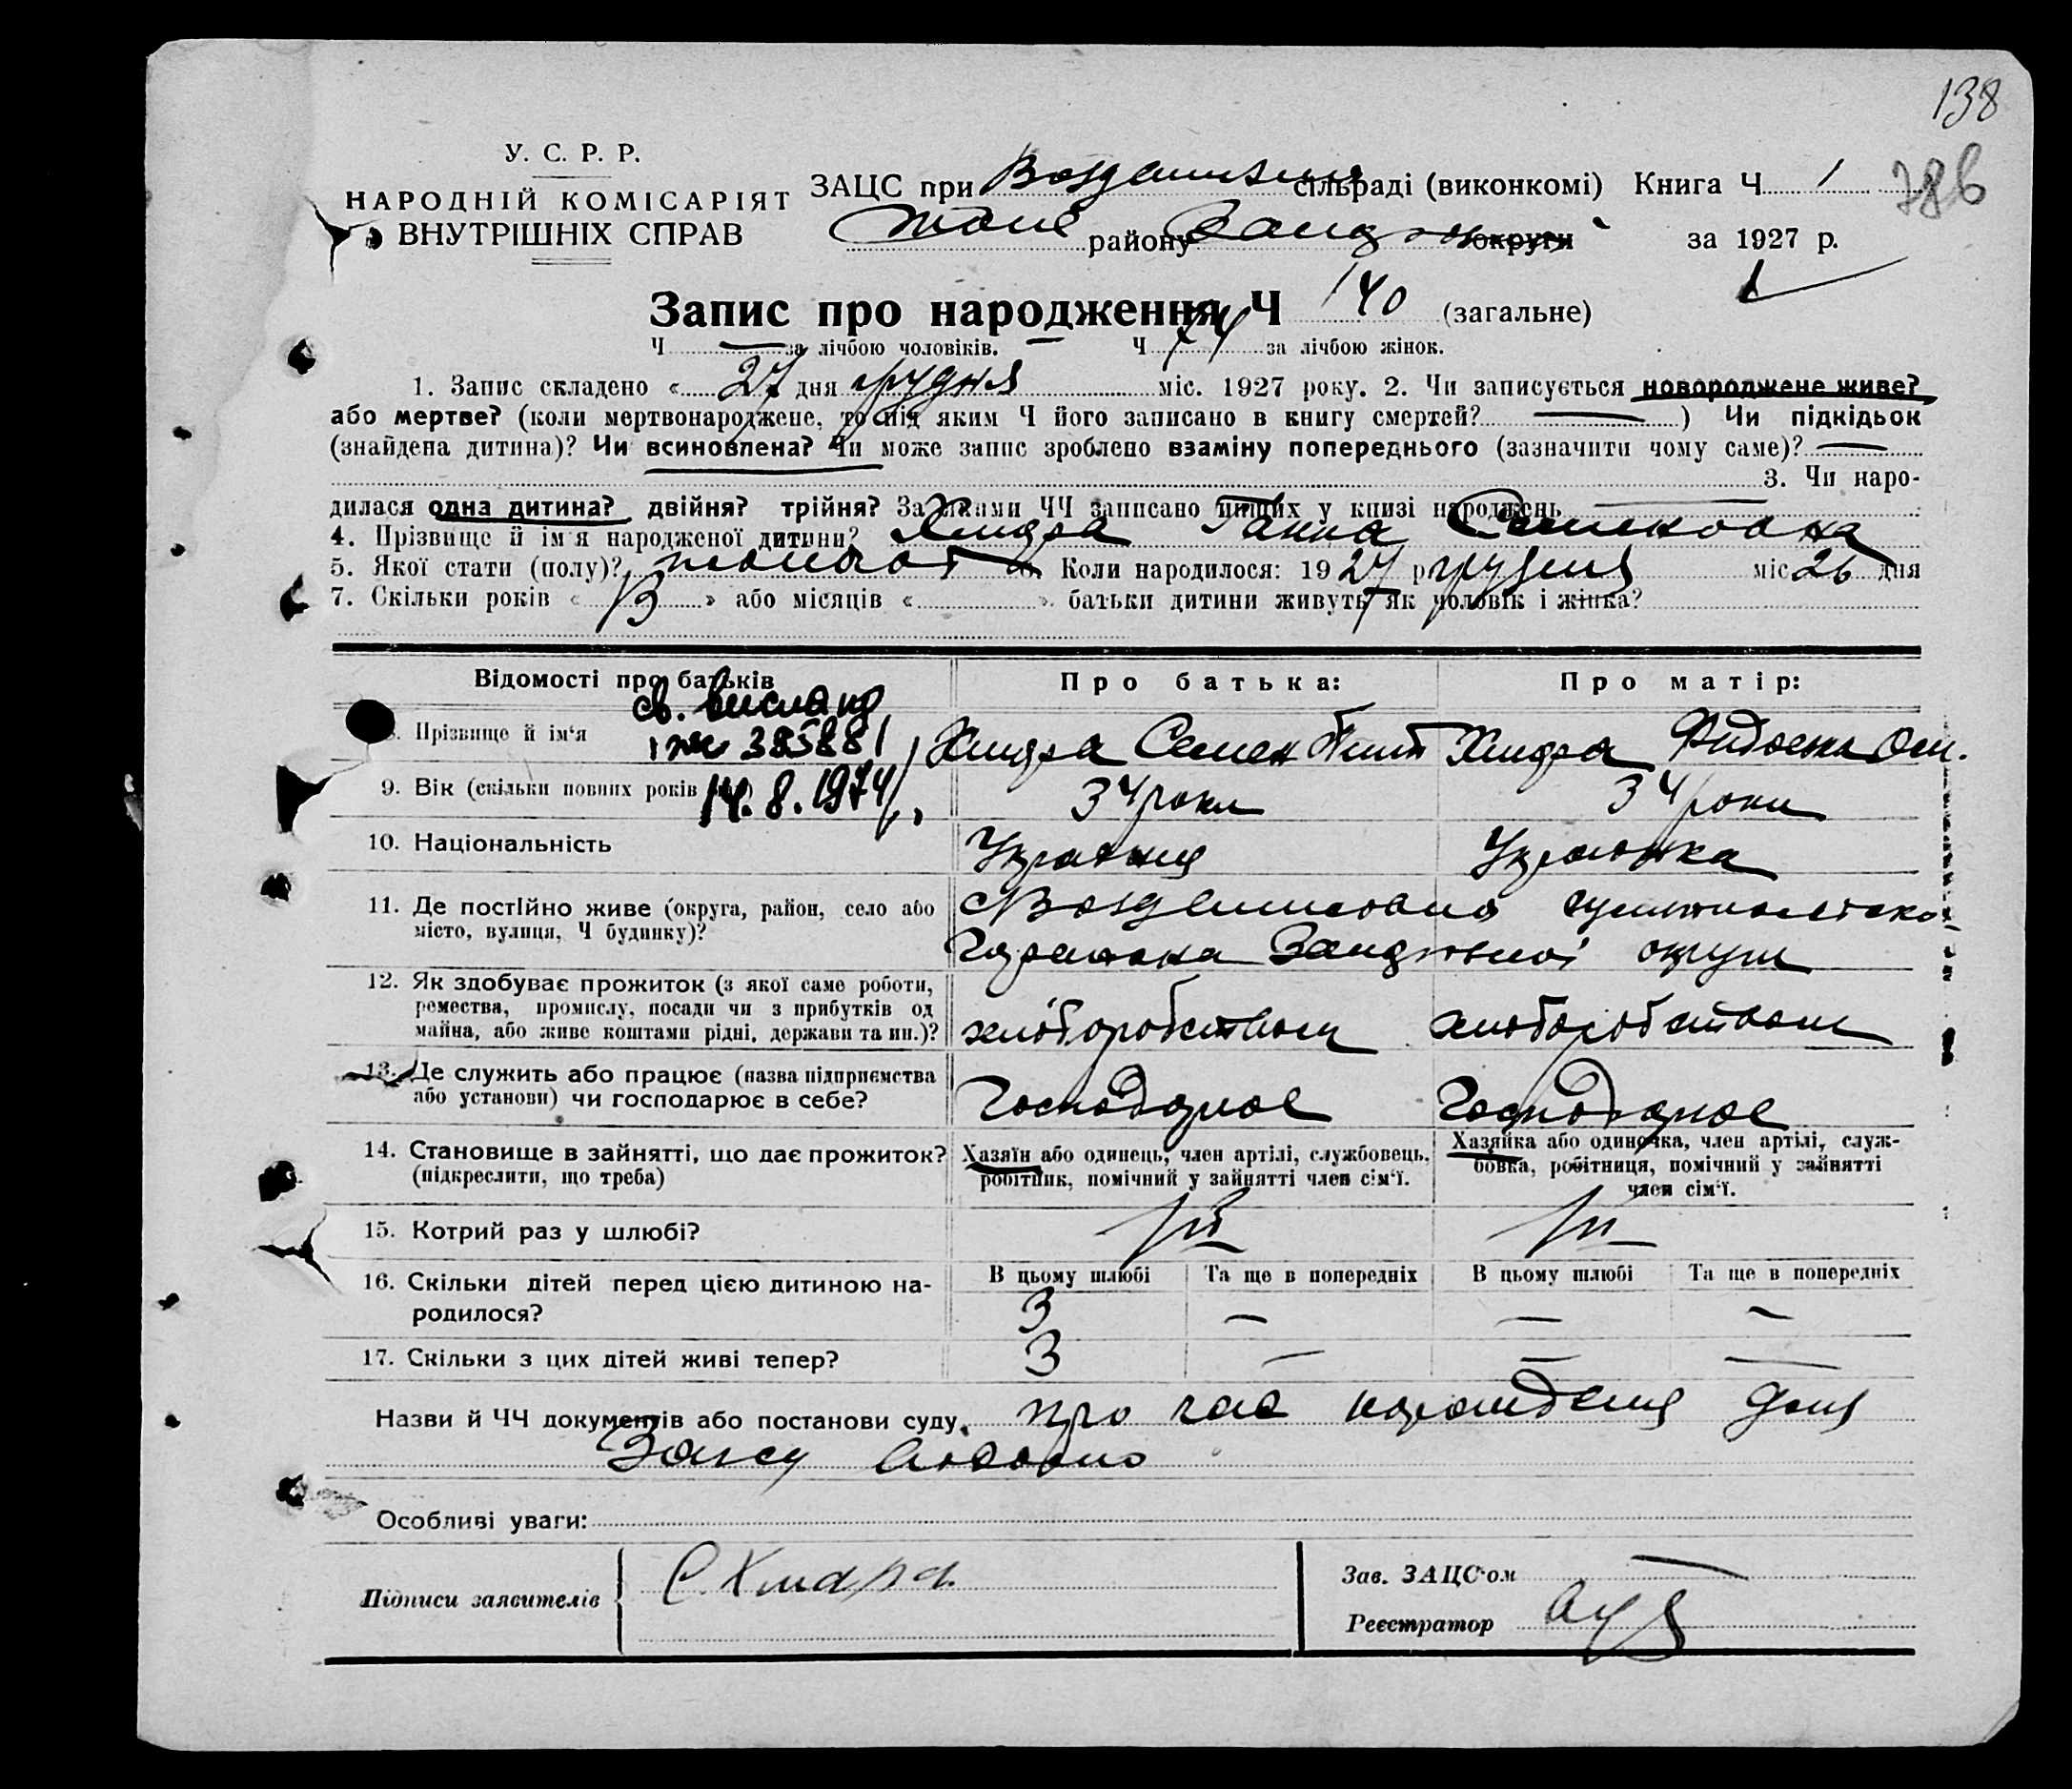 138
У. С. Р. Р.
НАРОДНІЙ КОМІСАРІЯТ
ВНУТРІШНІХ СПРАВ
ЗАЦС при сільраді (виконкомі) Книга Ч 1
786
району округи за 1927 р.
Запис про народження Ч 140 (загальне)
Ч — за лічбою чоловіків. — Ч 74 за лічбою жінок.
1. Запис складено « 27 дня грудня міс. 1927 року. 2. Чи записується новороджене живе?
або мертве? (коли мертвонароджене, то під яким Ч його записано в книгу смертей? — ) Чи підкідьок
(знайдена дитина)? Чи всиновлена? Чи може запис зроблено взаміну попереднього (зазначити чому саме)? —
3. Чи наро-
дилася одна дитина? двійня? трійня? За якими ЧЧ записано инших у книзі народжень —
4. Прізвище й ім'я народженої дитини? Хмара Ганна Семеновна
5. Якої стати (полу)? 6. Коли народилося: 1927 р. грудня міс. 26 дня
7. Скільки років « 13 » або місяців « » батьки дитини живуть як чоловік і жінка?
Відомості про батьків Про батька: Про матір:
св. выслано
8. Прізвище й ім'я Хмара Семен Хмара
385881
9. Вік (скільки повних років 34 роки 34 роки
14.8.1974
10. Національність Українец Українка
11. Де постійно живе (округа, район, село або
місто, вулиця, Ч будинку)?
округи
12. Як здобуває прожиток (з якої саме роботи,
ремества, промислу, посади чи з прибутків од
майна, або живе коштами рідні, держави та ин.)? хліборобством хліборобством
13. Де служить або працює (назва підприємства
або установи) чи господарює в себе? Господарює Господарює
14. Становище в зайнятті, що дає прожиток?
(підкреслити, що треба)
Хазяїн або одинець, член артілі, службовець,
робітник, помічний у зайнятті член сім'ї.
Хазяйка або одиночка, член артілі, служ-
бовка, робітниця, помічний у зайнятті
член сім'ї.
15. Котрий раз у шлюбі?
16. Скільки дітей перед цією дитиною на-
родилося?
В цьому шлюбі Та ще в попередніх В цьому шлюбі Та ще в попередніх
3 — — —
17. Скільки з цих дітей живі тепер? 3 — — —
Назви й ЧЧ документів або постанови суду про час нарождения
Загсу
Особливі уваги:
Підписи заявителів С. Хмара.
Зав. ЗАЦС'ом —
Реєстратор